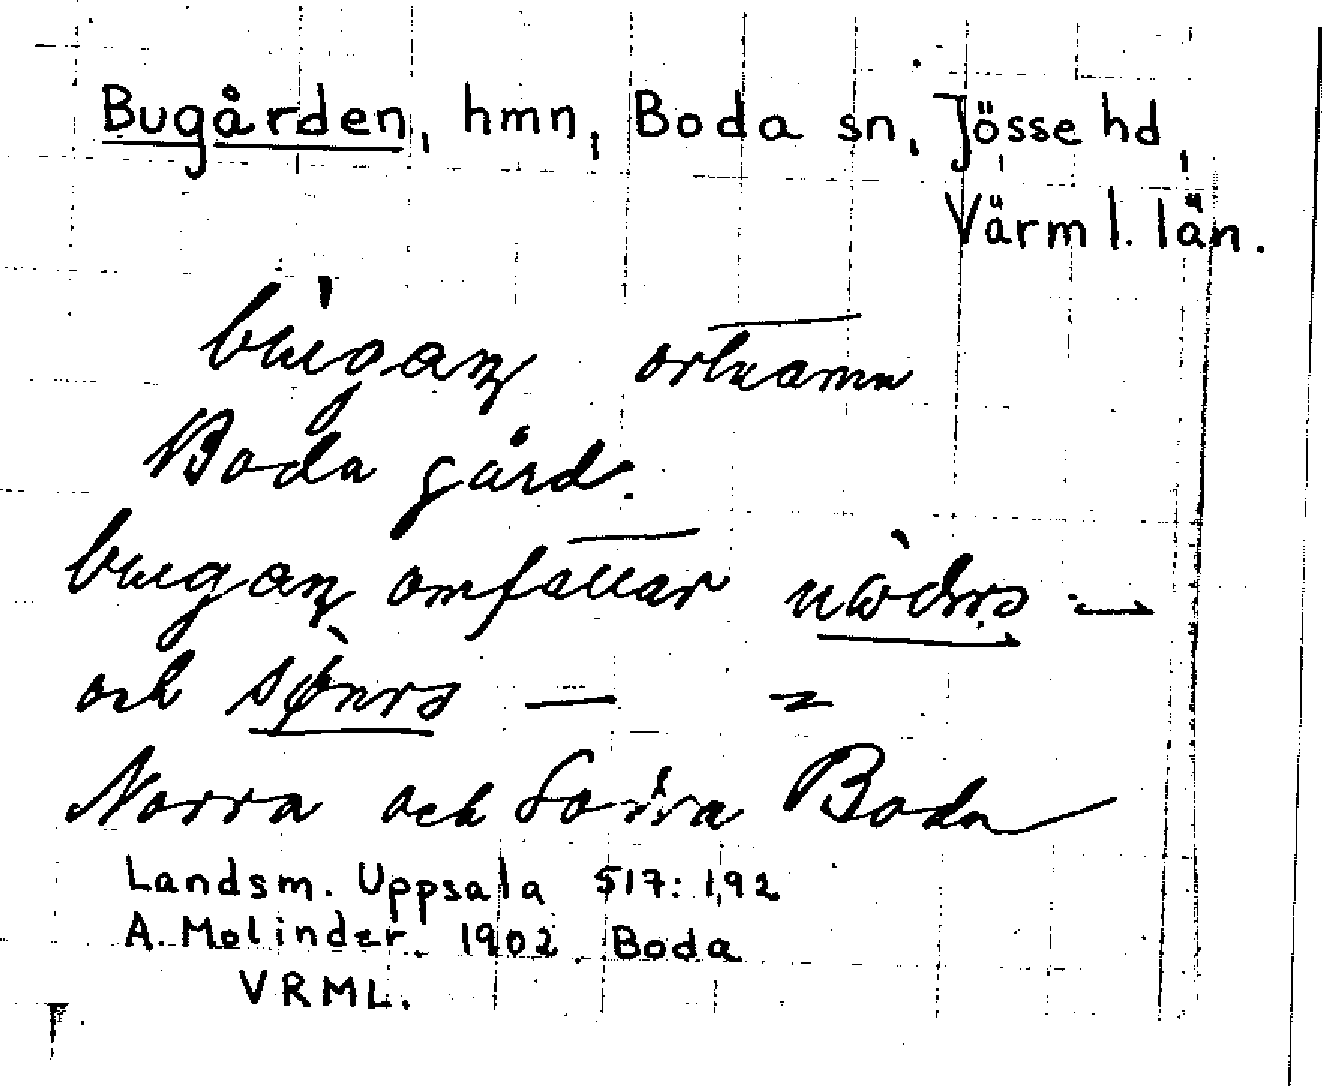 Bugården, hmn, Boda sn, Jösse hd,
Värml. län.
bugaɳ ortnamn
Boda gård.
bugaɳ omfattar nɷdrs —
och sønrs — =
Norra och Södra Boda
Landsm. Uppsala 517: 1,92
A. Molinder. 1902. Boda
VRML.